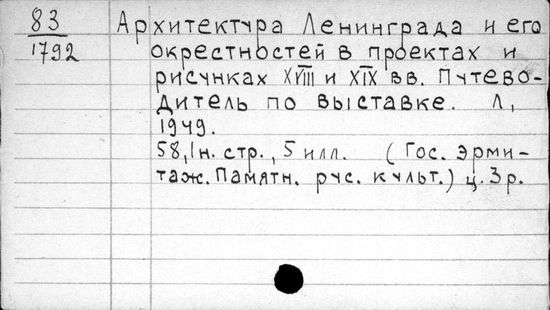 83
1792
Архитектура Ленинграда и его
окрестностей в проектах и
рисунках XVIII и XIX вв. Путево-
дитель по выставке. Л,
1949.
58, 1н. стр., 5 илл. (Гос. Эрми-
таж. Памятн. рус. культ.) ц. 3 р.